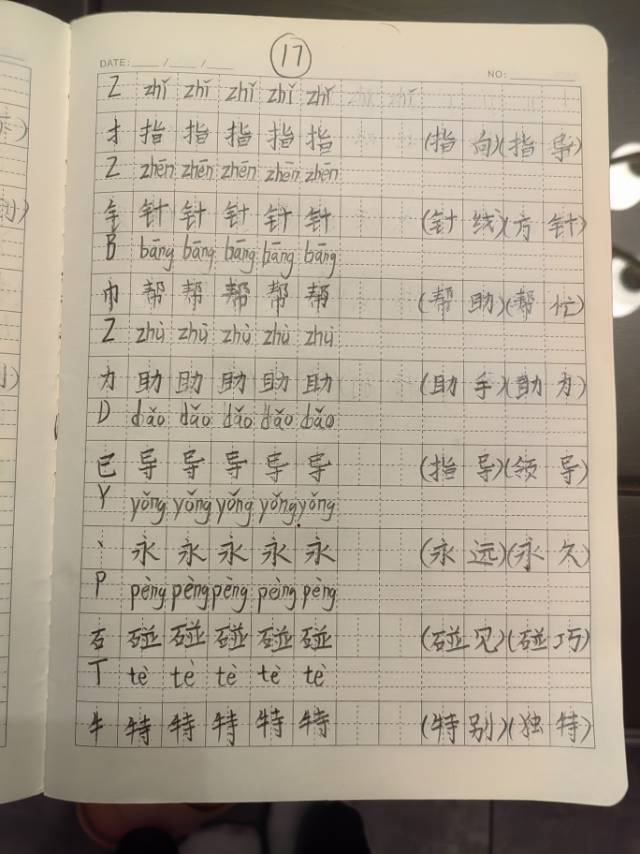 17
DATE: / /
NO:
Z zhǐ zhǐ zhǐ zhǐ zhǐ
扌 指 指 指 指 指 (指 向)(指 导)
Z zhēn zhēn zhēn zhēn zhēn
钅 针 针 针 针 针 (针 线)(方 针)
B bāng bāng bāng bāng bāng
巾 帮 帮 帮 帮 帮 (帮 助)(帮 忙)
Z zhù zhù zhù zhù zhù
力 助 助 助 助 助 (助 手)(助 力)
D dǎo dǎo dǎo dǎo dǎo
巳 导 导 导 导 导 (指 导)(领 导)
Y yǒng yǒng yǒng yǒng yǒng
丶 永 永 永 永 永 (永 远)(永 久)
P pèng pèng pèng pèng pèng
石 碰 碰 碰 碰 碰 (碰 见)(碰 巧)
T tè tè tè tè tè
牛 特 特 特 特 特 (特 别)(独 特)